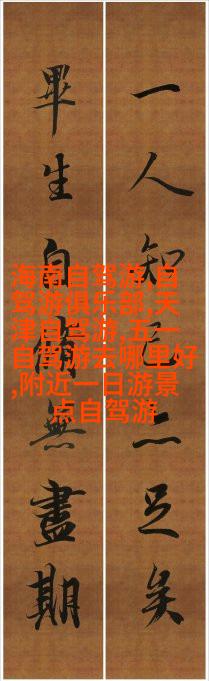 一人知己亦足矣
畢生自修無盡期
海南自驾游,自
驾游俱乐部,天
津自驾游,五一
自驾游去哪里好
,附近一日游景
点自驾游